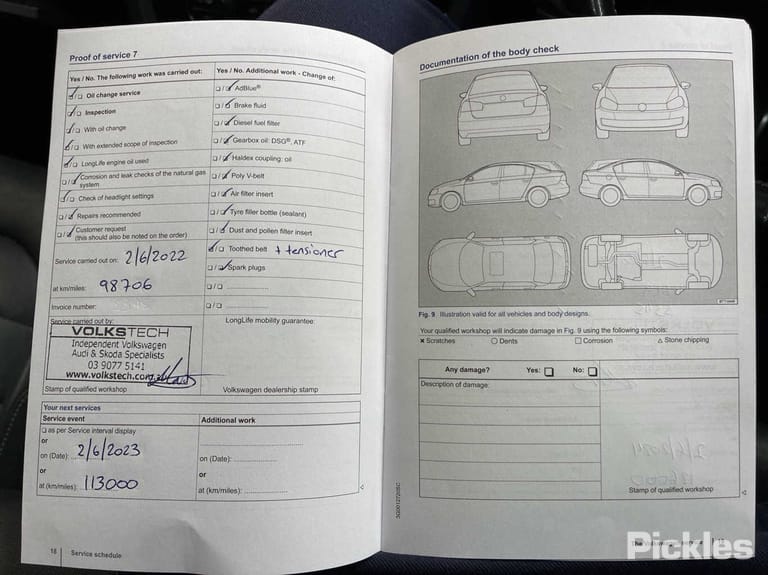 Proof of service 7
Yes / No. The following work was carried out:
☑/☐ Oil change service
☑/☐ Inspection
☑/☐ With oil change
☑/☐ With extended scope of inspection
☑/☐ LongLife engine oil used
☐/☑ Corrosion and leak checks of the natural gas
system
☑/☐ Check of headlight settings
☐/☑ Repairs recommended
☐/☑ Customer request
(this should also be noted on the order)
Service carried out on: 2/6/2022
at km/miles: 98706
Invoice number:
Service carried out by:
VOLKSTECH
Independent Volkswagen
Audi & Skoda Specialists
03 9077 5141
www.volkstech.com.au
Stamp of qualified workshop
Yes / No. Additional work - Change of:
☐/☑ AdBlue®
☐/☑ Brake fluid
☐/☑ Diesel fuel filter
☐/☑ Gearbox oil: DSG®, ATF
☐/☑ Haldex coupling: oil
☐/☑ Poly V-belt
☐/☑ Air filter insert
☐/☑ Tyre filler bottle (sealant)
☐/☑ Dust and pollen filter insert
☑/☐ Toothed belt + tensioner
☐/☑ Spark plugs
☐/☐ ....................
☐/☐ ....................
LongLife mobility guarantee:
Volkswagen dealership stamp
Your next services
Service event
☐ as per Service interval display
or
on (Date): 2/6/2023
or
at (km/miles): 113000
Additional work
on (Date):
or
at (km/miles):
18 Service schedule
Documentation of the body check
Fig. 9 Illustration valid for all vehicles and body designs.
Your qualified workshop will indicate damage in Fig. 9 using the following symbols:
✕ Scratches ○ Dents □ Corrosion △ Stone chipping
Any damage? Yes: ☐ No: ☐
Description of damage:
Stamp of qualified workshop
Pickles